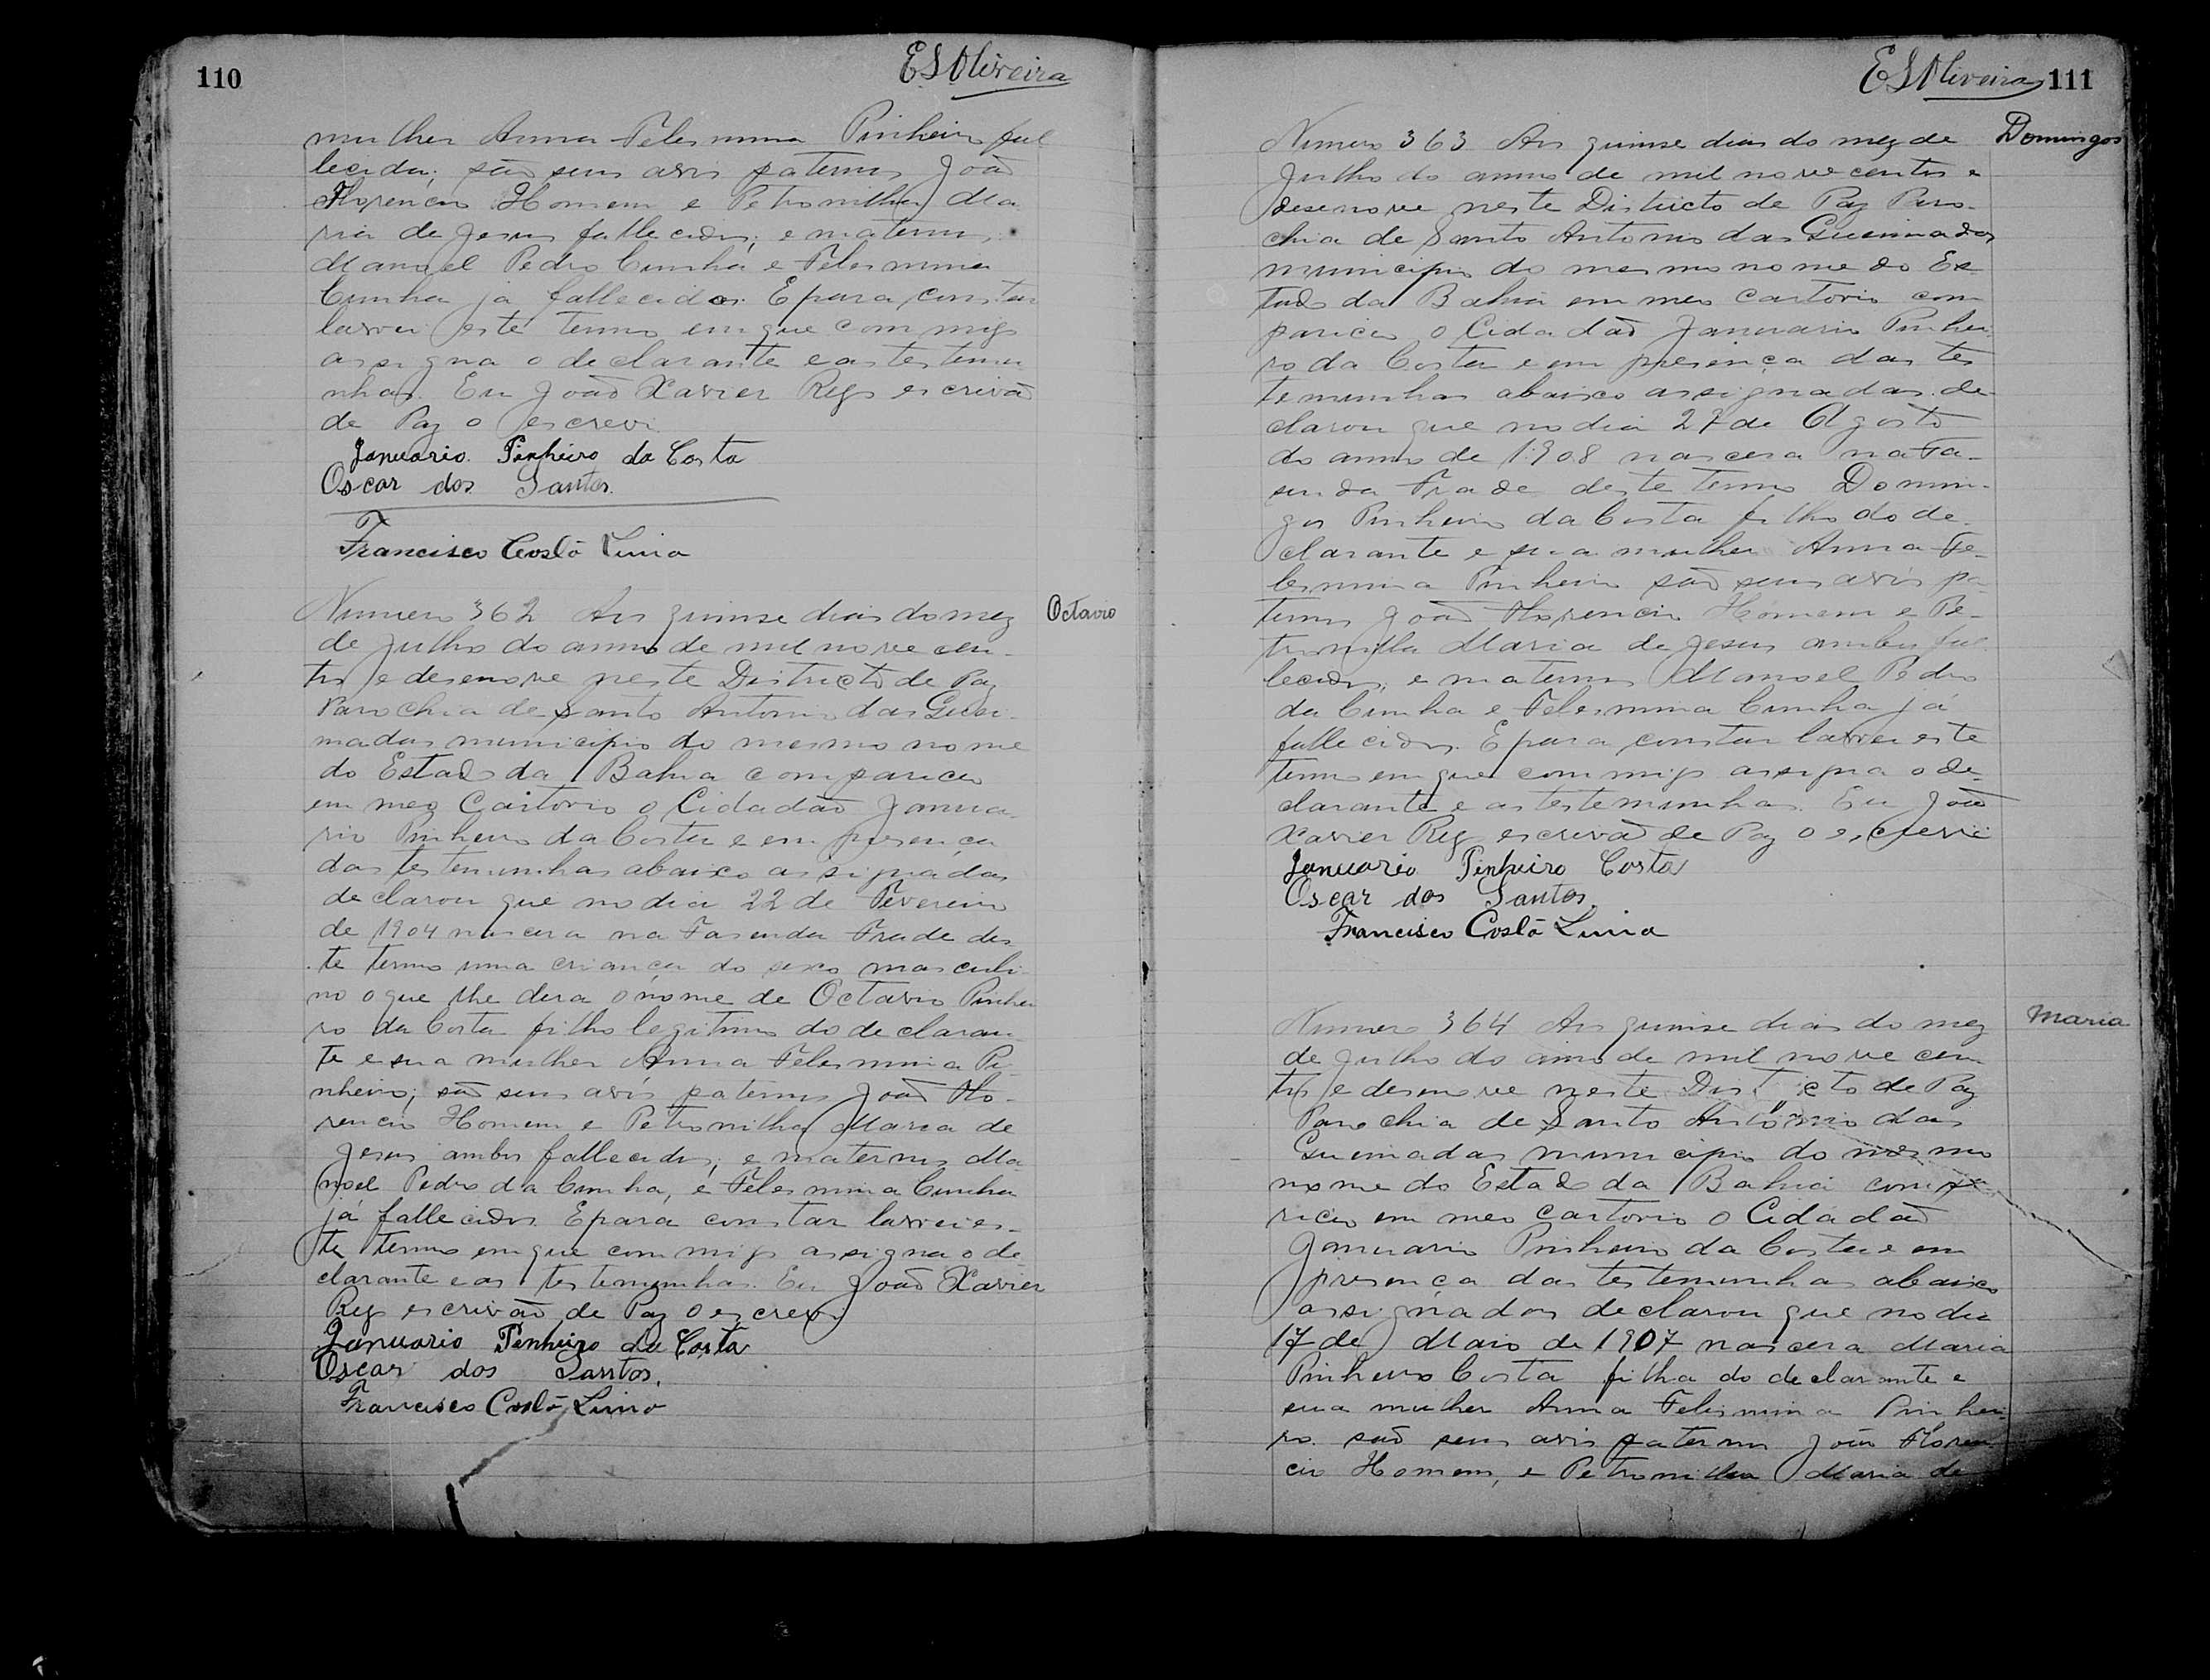 110
ESOliveira
mulher Anna Felesmina Pinheiro fal
lecida; são seus avós paternos João
Florencio Homem e Petronilha Ma
ria de Jesus fallecidos; e maternos,
Manoel Pedro Cunha e Felesmina
Cunha já fallecidos. E para constar
lavrei este termo em que commigo
assigna o declarante e as testemu
nhas. Eu João Xavier Rego escrivão
de Paz o escrevi
Januario Pinheiro da Costa
Oscar dos Santos
Francisco Lima
Numero 362 Aos quinse dias do mez
Octavio
de Julho do anno de mil nove cen-
tos e desenove neste Districto de Paz
Parochia de Santo Antonio das Quei-
madas municipio do mesmo nome
do Estado da Bahia compareceu
em meo Cartorio o Cidadão Janua-
rio Pinheiro da Costa e em presença
das testemunhas abaixo assignadas
declarou que no dia 22 de Fevereiro
de 1904 nascera na Fasenda Frade des-
te termo uma criança do sexo masculi-
no o que lhe dera o nome de Octavio Pinhei
ro da Costa filho legitimo do declaran-
te e sua mulher Anna Felesmina Pi-
nheiro; são seus avós paternos João Flo-
rencio Homem e Petronilha Maria de
Jesus ambos fallecidos; e maternos Ma
noel Pedro da Cunha, e Felesmina Cunha
já fallecidos E para constar lavrei es-
te termo em que commigo assigna o de
clarante e as testemunhas. Eu João Xavier
Rego escrivão de Paz o escrevi
Januario Pinheiro da Costa
Oscar dos Santos.
Francisco Lima
ESOliveira 111
Numero 363 Aos quinse dias do mez de
Domingos
Julho do anno de mil nove centos e
desenove neste Districto de Paz Paro-
chia de Santo Antonio das Queimadas
municipio do mesmo nome do Es
tado da Bahia em meo cartorio com
pareceu o Cidadão Januario Pinhei-
ro da Costa e em presença das tes
temunhas abaixo assignadas de-
clarou que no dia 27 de Agosto
do anno de 1908 nascera na Fa-
senda Frade deste termo Domin-
gos Pinheiro da Costa filho do de-
clarante e sua mulher Anna Fe-
lesmina Pinheiro são seus avós pa-
ternos João Florencio Homem e Pe-
tronilha Maria de Jesus ambos fal
lecidos; e maternos Manoel Pedro
da Cunha e Felesmina Cunha já
fallecidos. E para constar lavrei este
termo em que commigo assigna o de-
clarante e as testemunhas. Eu João
Xavier Rego escrivão de Paz o escrevi
Januario Pinheiro Costa
Oscar dos Santos.
Francisco Lima
Numero 364 Aos quinse dias do mez
Maria
de Julho do anno de mil nove cen
tos e desenove neste Districto de Paz
Parochia de Santo Antonio das
Queimadas municipio do mesmo
nome do Estado da Bahia compa
receu em meo cartorio o Cidadão
Januario Pinheiro da Costa e em
presença das testemunhas abaixo
assignadas declarou que no dia
17 de Maio de 1907 nascera Maria
Pinheiro Costa filha do declarante e
sua mulher Anna Felesmina Pinhei-
ro. são seus avós paternos João Floren
cio Homem, e Petronilha Maria de